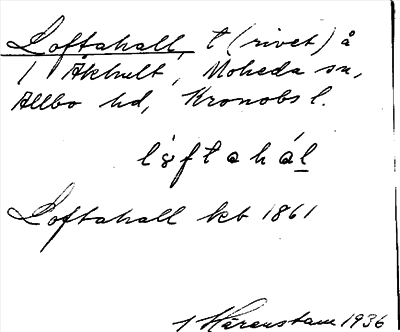 Loftahall, t (rivet) å
1 Äkhult, Moheda sn,
Allbo hd, Kronobs l.
lòftahál
Loftahall kb 1861
1 Härenstam 1936